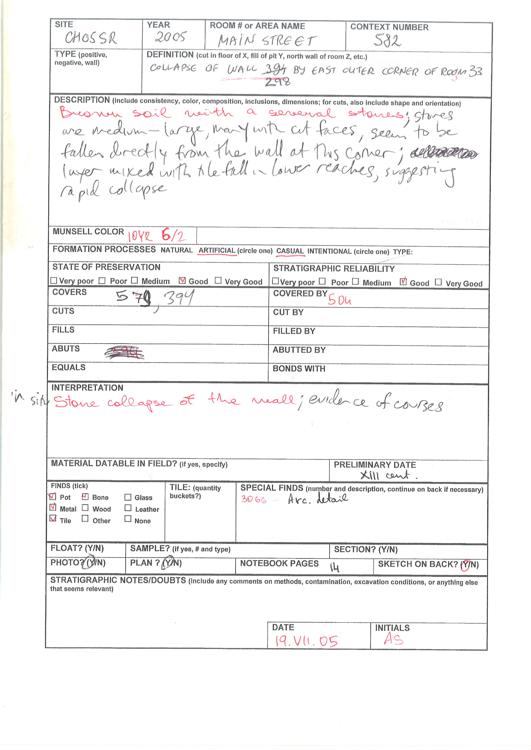 SITE
CHOSSR
YEAR
2005
ROOM # or AREA NAME
MAIN STREET
CONTEXT NUMBER
582
TYPE (positive, negative, wall)
DEFINITION (cut in floor of X, fill of pit Y, north wall of room Z, etc.)
COLLAPSE OF WALL 394 BY EAST OUTER CORNER OF ROOM 33
298
DESCRIPTION (Include consistency, color, composition, inclusions, dimensions; for cuts, also include shape and orientation)
Brown soil with a several stones; stones
are medium-large, many with cut faces, seem to be
fallen directly from the wall at this corner;
layer mixed with tile fall in lower reaches, suggesting
rapid collapse
MUNSELL COLOR 10YR 6/2
FORMATION PROCESSES NATURAL ARTIFICIAL (circle one) CASUAL INTENTIONAL (circle one) TYPE:
STATE OF PRESERVATION
☐ Very poor ☐ Poor ☐ Medium ☑ Good ☐ Very Good
STRATIGRAPHIC RELIABILITY
☐ Very poor ☐ Poor ☐ Medium ☑ Good ☐ Very Good
COVERS 579, 394
COVERED BY 504
CUTS
CUT BY
FILLS
FILLED BY
ABUTS
ABUTTED BY
EQUALS
BONDS WITH
INTERPRETATION
in situ Stone collapse of the wall; evidence of courses
MATERIAL DATABLE IN FIELD? (if yes, specify)
PRELIMINARY DATE
XIII cent.
FINDS (tick)
☑ Pot ☑ Bone ☐ Glass
☑ Metal ☐ Wood ☐ Leather
☑ Tile ☐ Other ☐ None
TILE: (quantity buckets?)
SPECIAL FINDS (number and description, continue on back if necessary)
3066 - Arc. detail
FLOAT? (Y/N)
SAMPLE? (if yes, # and type)
SECTION? (Y/N)
PHOTO? (Y/N)
PLAN ? (Y/N)
NOTEBOOK PAGES 14
SKETCH ON BACK? (Y/N)
STRATIGRAPHIC NOTES/DOUBTS (Include any comments on methods, contamination, excavation conditions, or anything else that seems relevant)
DATE
19.VII.05
INITIALS
AS